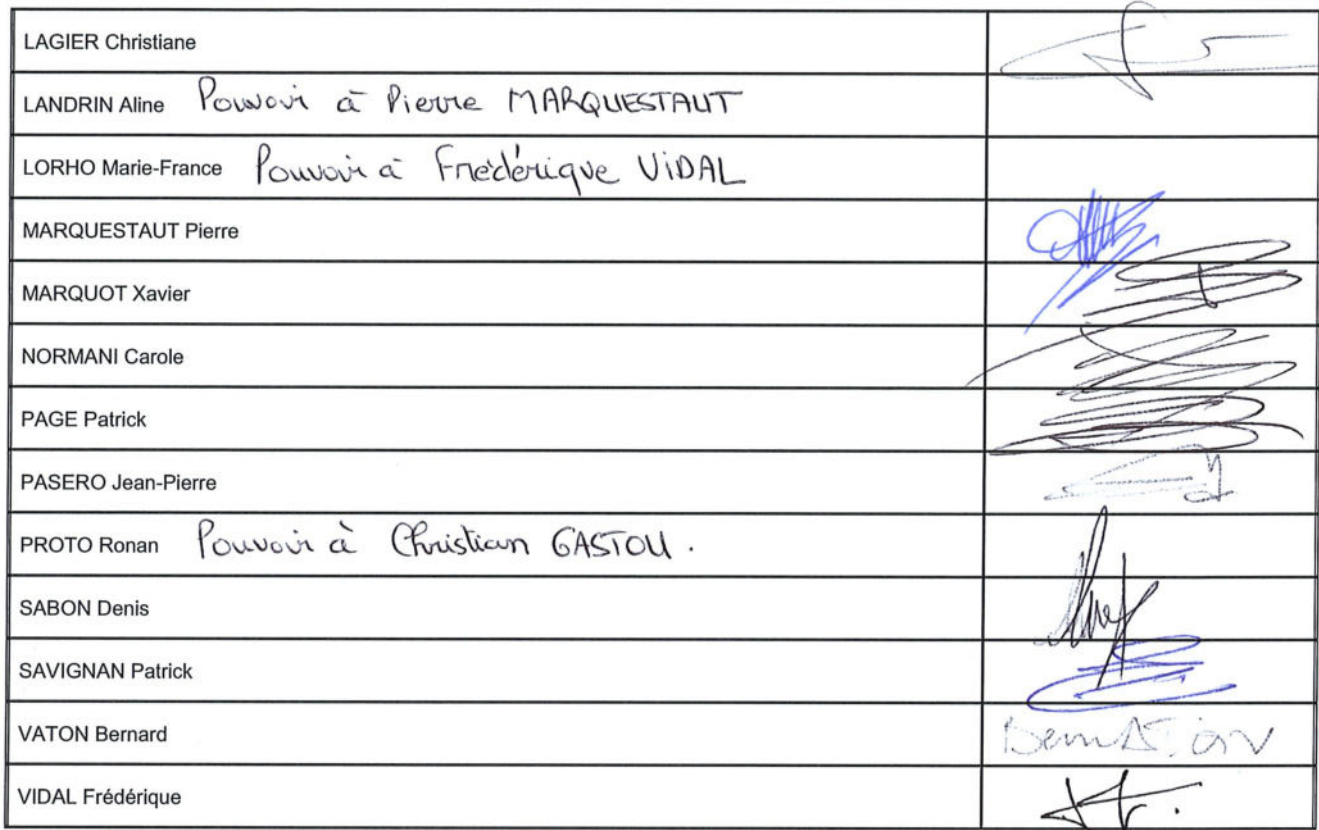 LAGIER Christiane
LANDRIN Aline Pouvoir à Pierre MARQUESTAUT
LORHO Marie-France Pouvoir à Frédérique VIDAL
MARQUESTAUT Pierre
MARQUOT Xavier
NORMANI Carole
PAGE Patrick
PASERO Jean-Pierre
PROTO Ronan Pouvoir à Christian GASTOU.
SABON Denis
SAVIGNAN Patrick
VATON Bernard
VIDAL Frédérique